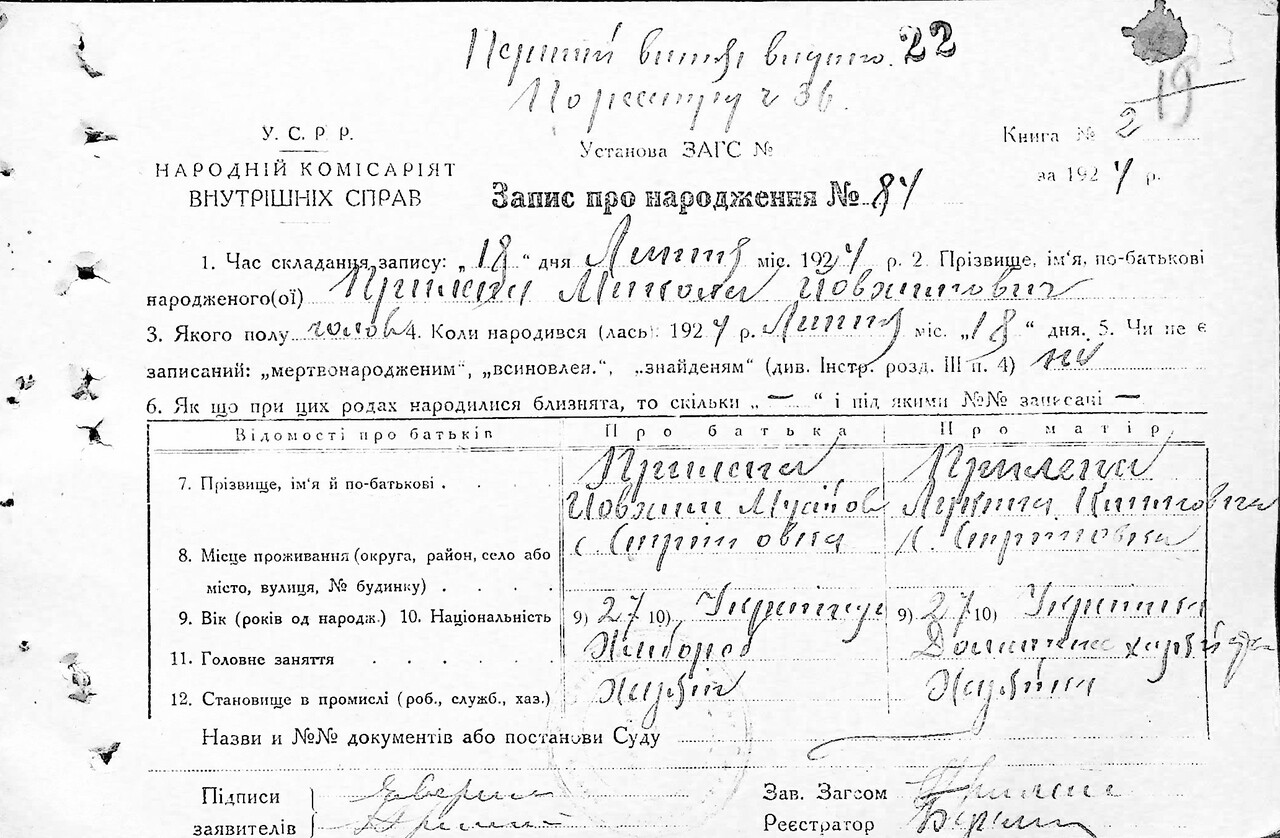 Перший витяг видано. 22
По реєстру ч 36.
19
У. С. Р. Р.
НАРОДНІЙ КОМІСАРІЯТ
ВНУТРІШНІХ СПРАВ
Установа ЗАГС №
Книга № 2
за 1924 р.
Запис про народження № 84
1. Час складання запису: „18“ дня Липня міс. 1924 р. 2. Прізвище, ім'я, по-батькові
народженого(ої) Прилепа Микола Йовхимович
3. Якого полу голов 4. Коли народився (лась) 1924 р. Липня міс. „18“ дня. 5. Чи не є
записаний: „мертвонародженим“, „всиновлея.“, „знайденям“ (див. Інстр. розд. III п. 4) ні
6. Як що при цих родах народилися близнята, то скільки „—“ і під якими №№ записані —
Відомості про батьків Про батька Про матір
7. Прізвище, ім'я й по-батькові . Прилепа Прилепа
Йовхим
8. Місце проживання (округа, район, село або с. с.
місто, вулиця, № будинку) .
9. Вік (років од народж.) 10. Національність 9) 27 10) Українець 9) 27 10) Українка
11. Головне заняття Хлібороб Домашнє
12. Становище в промислі (роб., служб., хаз.) Хазяїн Хазяйка
Назви и №№ документів або постанови Суду
Підписи Зав. Загсом
заявителів Реєстратор